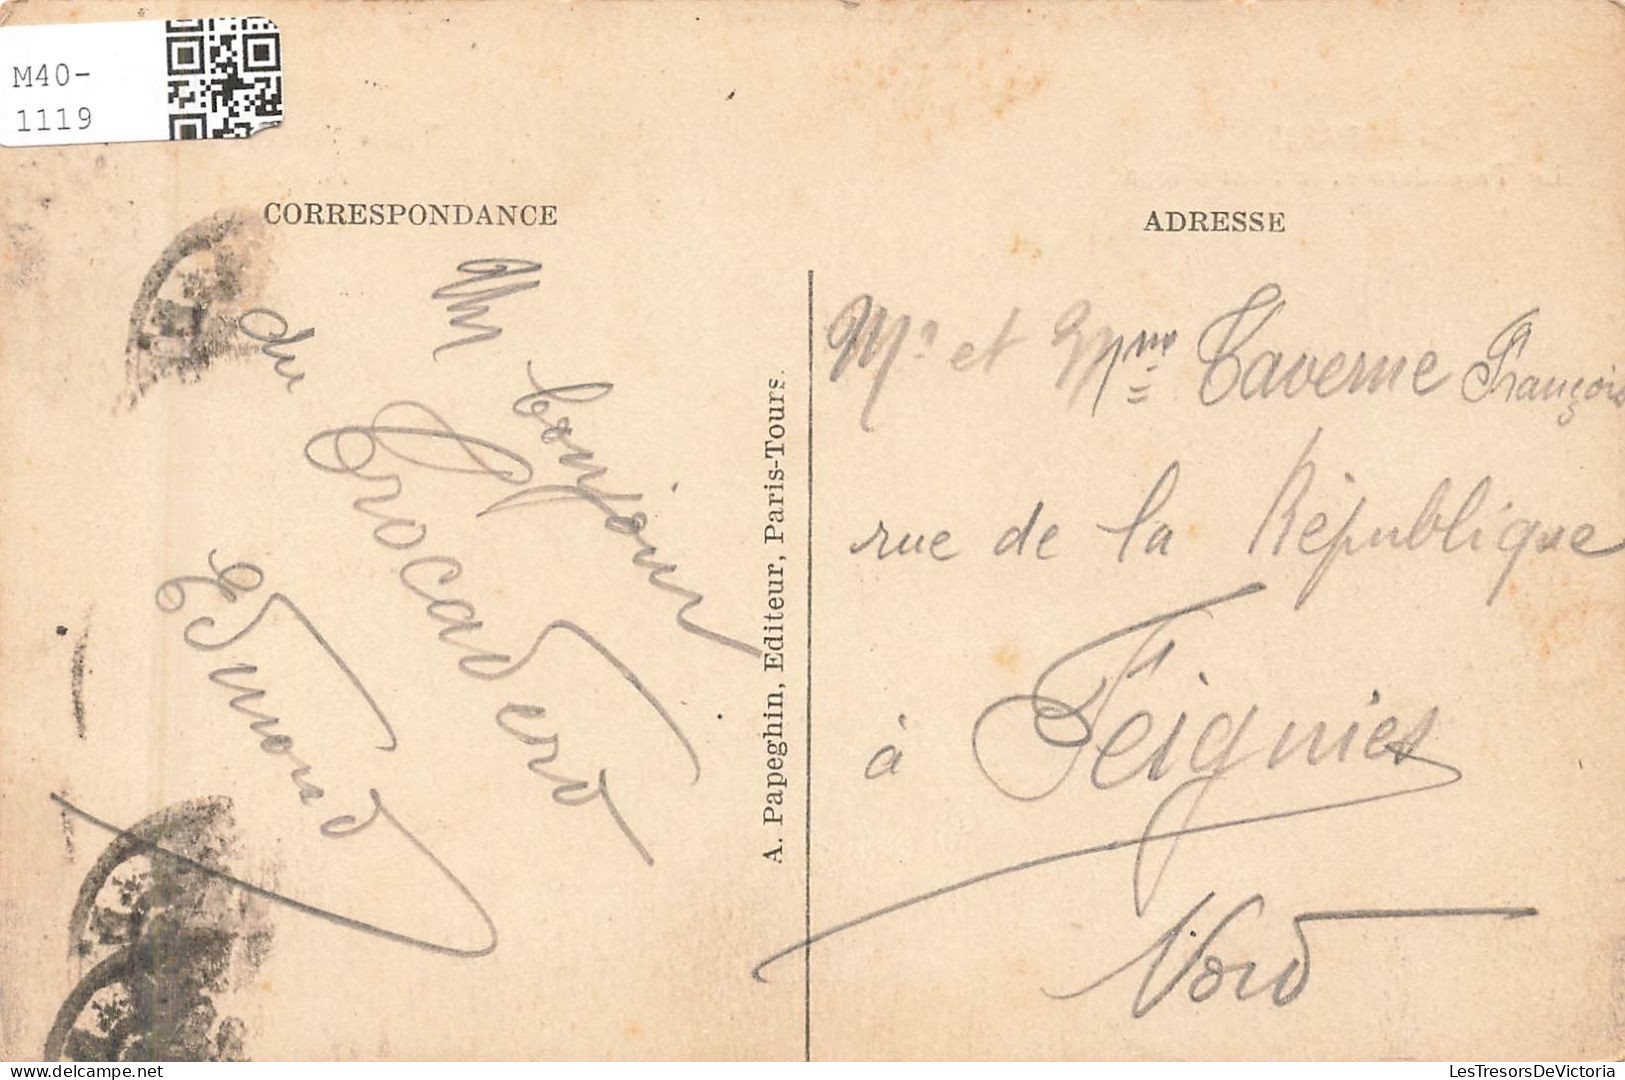 M40-
1119
CORRESPONDANCE
Un bonjour
du
Trocadero
Edmond
A. Papeghin, Editeur, Paris-Tours.
ADRESSE
Mr et Mme Taverne François
rue de la République
à Feignies
Nord
www.delcampe.net
LesTresorsDeVictoria